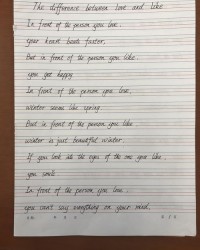 The difference between love and like
In front of the person you love,
your heart beats faster,
But in front of the person you like
you get happy
In front of the person you love,
winter seems like spring.
But in front of the person you like
winter is just beautiful winter.
If you look into the eyes of the one you like,
you smile
In front of the person you love,
you can't say everything on your mind,